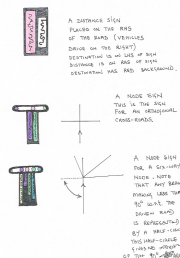 A DISTANCE SIGN
PLACED ON THE RHS
OF THE ROAD (VEHICLES
DRIVE ON THE RIGHT)
DESTINATION IS ON LHS OF SIGN
DISTANCE IS ON RHS OF SIGN
DESTINATION HAS RED BACKGROUND.
A NODE SIGN
THIS IS THE SIGN
FOR AN ORTHOGONAL
CROSS-ROADS.
A NODE SIGN
FOR A SIX-WAY
NODE. NOTE
THAT ANY
MAKING LESS THAN
90° W.R.T. THE
DRIVEN ROAD
IS REPRESENTED
BY A HALF-
THIS HALF-CIRCLE
OF THE 90°